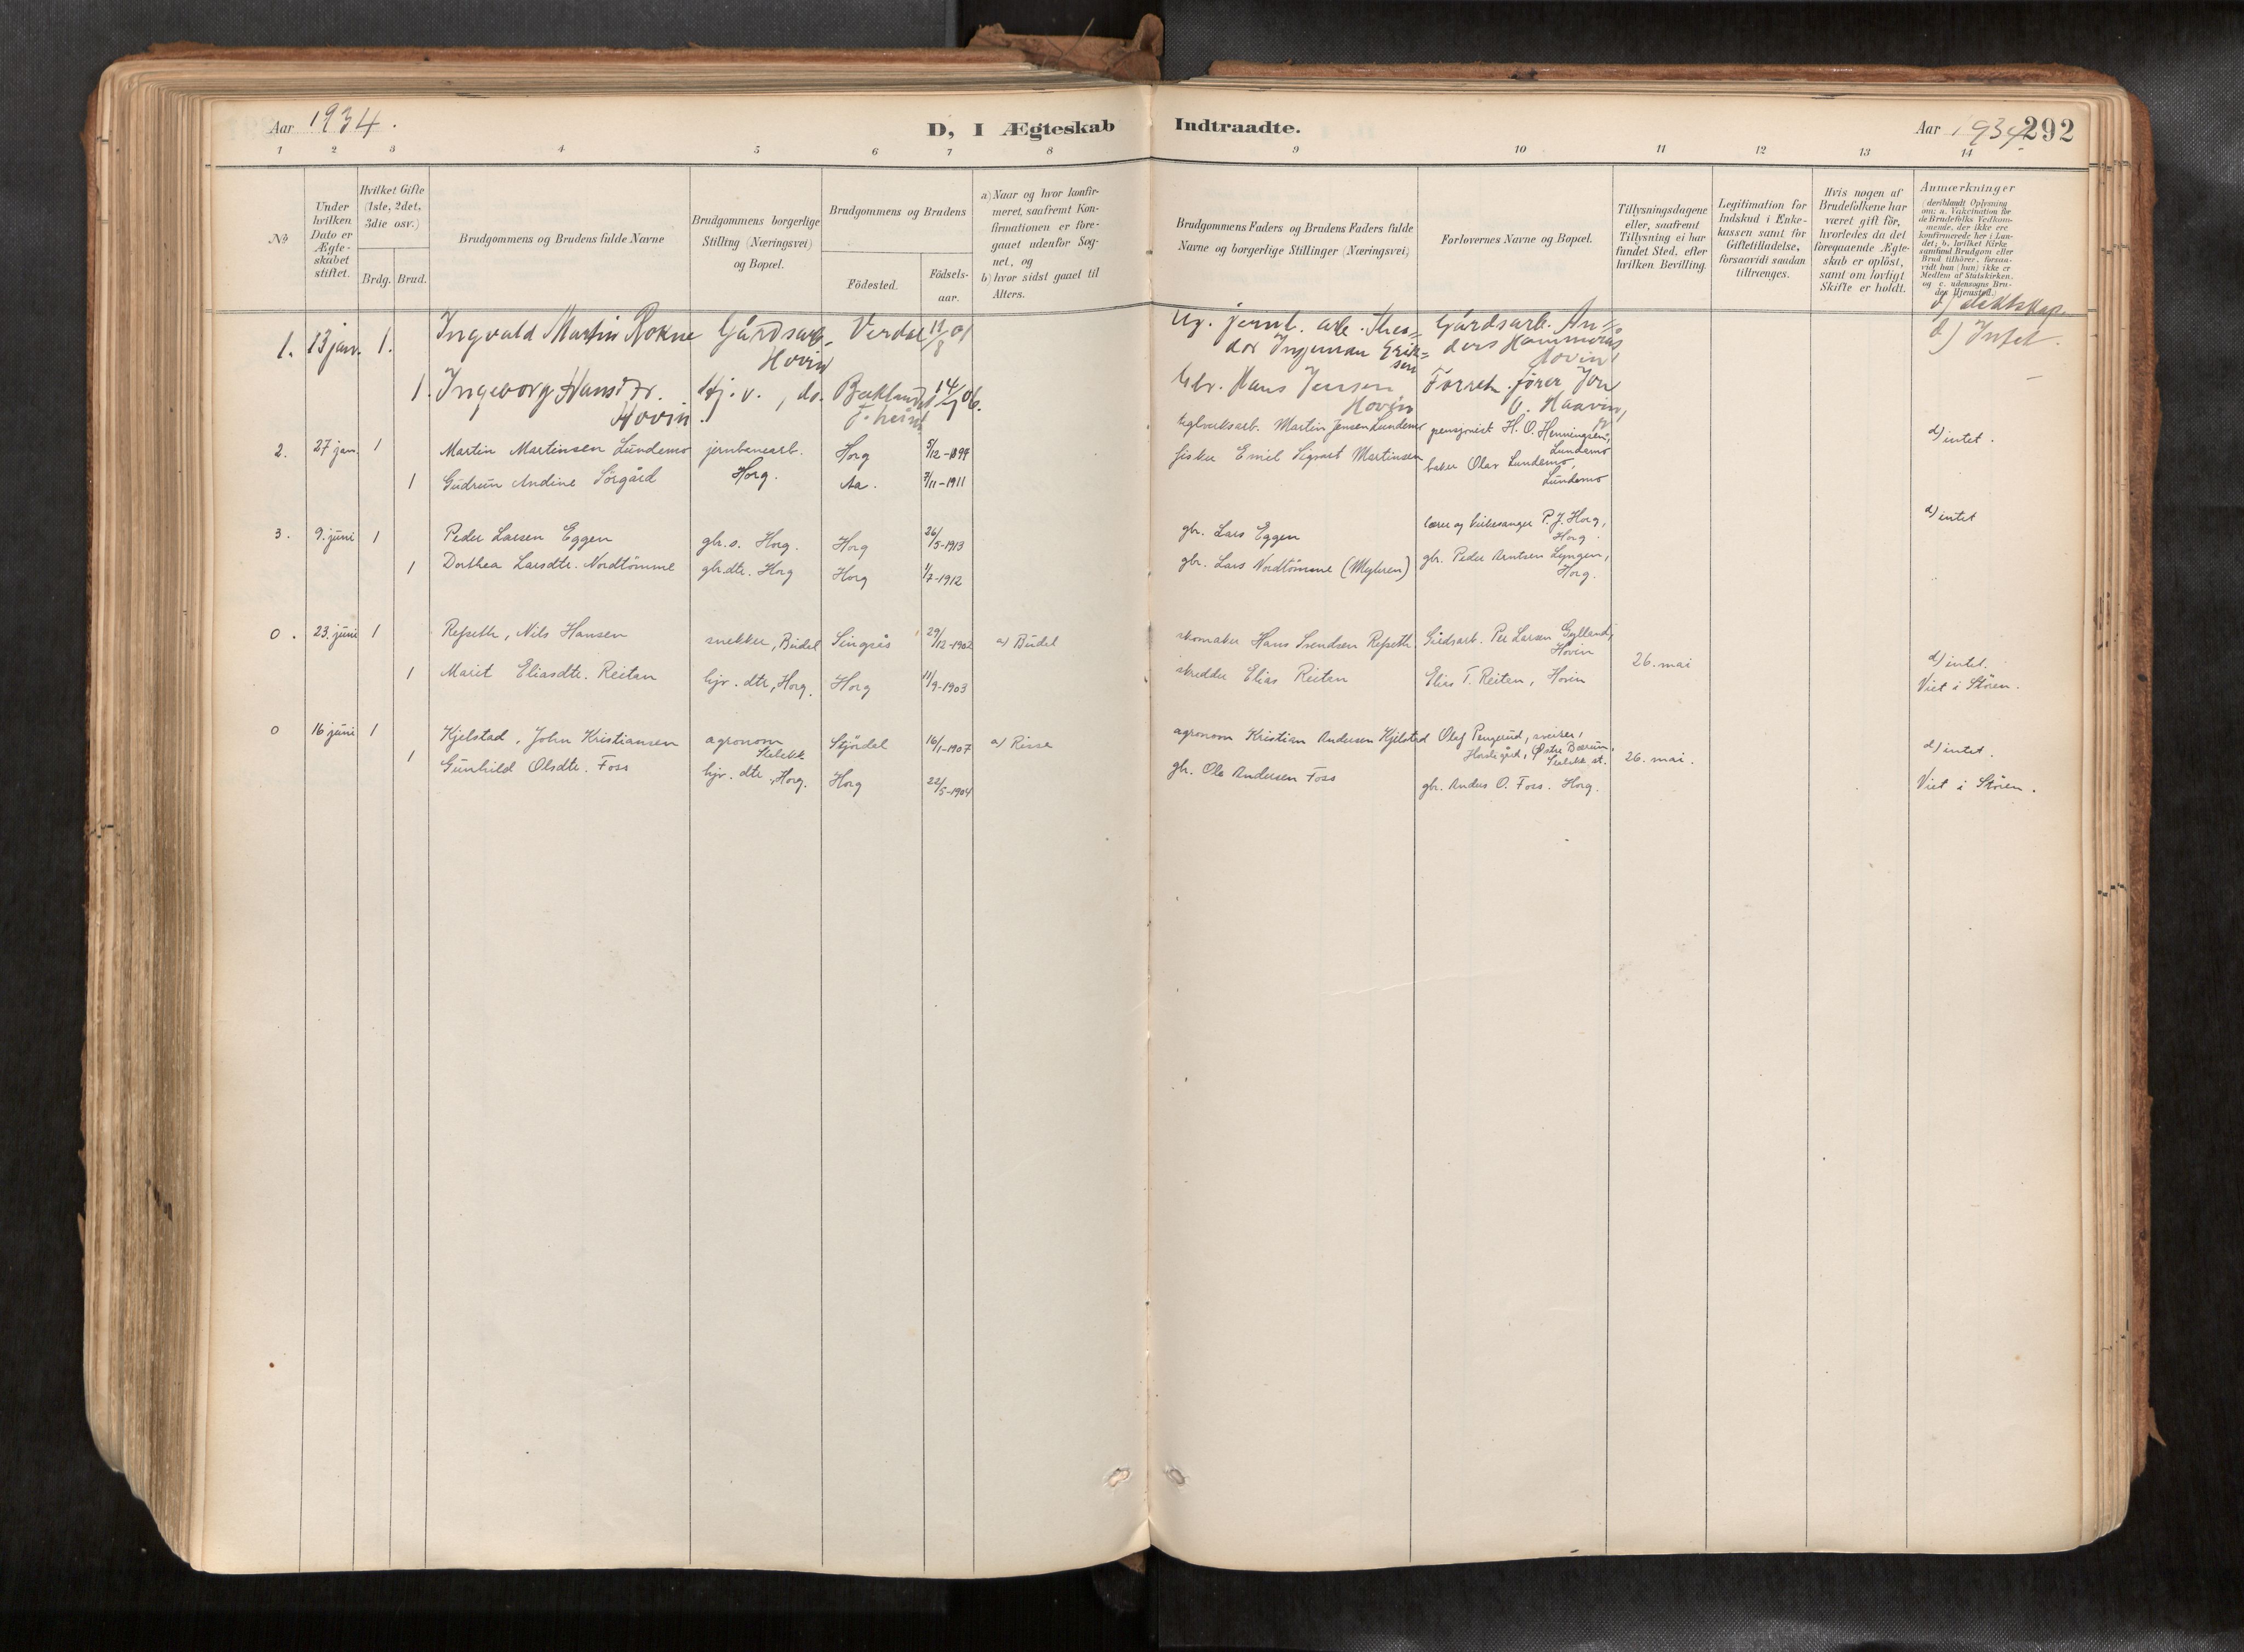 Aar 1934.
D, I Ægteskab Indtraadte.
Aar 1934. 292
1 2 3 4 5 6 7 8 9 10 11 12 13 14
№
Under hvilken Dato er Ægteskabet stiftet.
Hvilket Gifte (1ste, 2det, 3die osv.)
Brdg. Brud.
Brudgommens og Brudens fulde Navne
Brudgommens borgerlige Stilling (Næringsvei) og Bopæl.
Brudgommens og Brudens
Födested. Födsels-aar.
a) Naar og hvor konfir-
meret, saafremt Kon-
firmationen er fore-
gaaet udenfor Sog-
net, og
b) hvor sidst gaaet til
Alters.
Brudgommens Faders og Brudens Faders fulde
Navne og borgerlige Stillinger (Næringsvei)
Forlovernes Navne og Bopæl.
Tillysningsdagene
eller, saafremt
Tillysning ei har
fundet Sted, efter
hvilken Bevilling.
Legitimation for
Indskud i Enke-
kassen samt for
Giftetilladelse,
forsaavidt saadan
tiltrænges.
Hvis nogen af
Brudefolkene har
været gift för,
hvorledes da det
foregaaende Ægte-
skab er oplöst,
samt om lovligt
Skifte er holdt.
Anmærkninger
(deriblandt Oplysning
om: a. Vakcination for
de Brudefolks Vedkom-
mende, der ikke ere
konfirmerede her i Lan-
det; b. hvilket Kirke-
samfund Brudgom eller
Brud tilhörer, forsaa-
vidt han (hun) ikke er
Medlem af Statskirken,
og c. udensogns Bru-
des Hjemsted.)
d) slektskap.
1. 13 jan. 1. Ingvald Martin Rokne Gårdsarb. Verdal 11/8 01 Ug. jernb. arb. Theo= Gårdsarb. An= d) Intet.
Hovin dor Ingeman Erik= ders Hammerås
sen Hovin
1. Ingeborg Hansdtr. Hj. v., do. Baklandet 14/1 06. Gbr. Hans Jensen Forretn. fører Jon
Hovin. T.heim Hovin O. Haavin,
2. 27 jan 1 Martin Martinsen Lundemo jernbanearb. Horg 5/12-1899 teglverksarb. Martin Jensen Lundemo pensjonist H. O. Henningsen, d) intet.
Horg. Lundemo
1 Gudrun Andine Sörgård Aa. 7/11-1911 fisker Emil Sigvart Martinsen baker Olav Lundemo,
Lundemo
3. 9. juni 1 Peder Larsen Eggen gbr.s. Horg. Horg 26/5-1913 gbr. Lars Eggen lærer og kirkesanger P. J. Horg, d) intet
Horg.
1 Dorthea Larsdtr. Nordtömme gbr.dtr. Horg Horg 1/7-1912 gbr. Lars Nordtömme (Myhren) gbr. Peder Arntsen Lyngen,
Horg.
0. 23. juni 1 Refseth, Nils Hansen snekker, Budal Singsås 29/12-1902 a) Budal skomaker Hans Svendsen Refseth Gårdsarb. Per Larsen Gylland,
Hovin
26. mai d) intet.
1 Marit Eliasdtr. Reitan hjv. dtr, Horg. Horg 11/9-1903 skredder Elias Reiten Elias T. Reiten, Hovin Viet i Stören.
0 16 juni 1 Kjelstad, John Kristiansen agronom Stjørdal 16/1-1907 a) Rissa agronom Kristian Andersen Kjelstad Olaf Pengerud, sveiser, d) intet.
Haslegård, Østre Bærum,
26. mai.
1 Gunhild Olsdtr. Foss hjv. dtr, Horg. Horg 22/5-1904 gbr. Ole Andersen Foss gbr. Anders O. Foss. Horg. Viet i Stören.